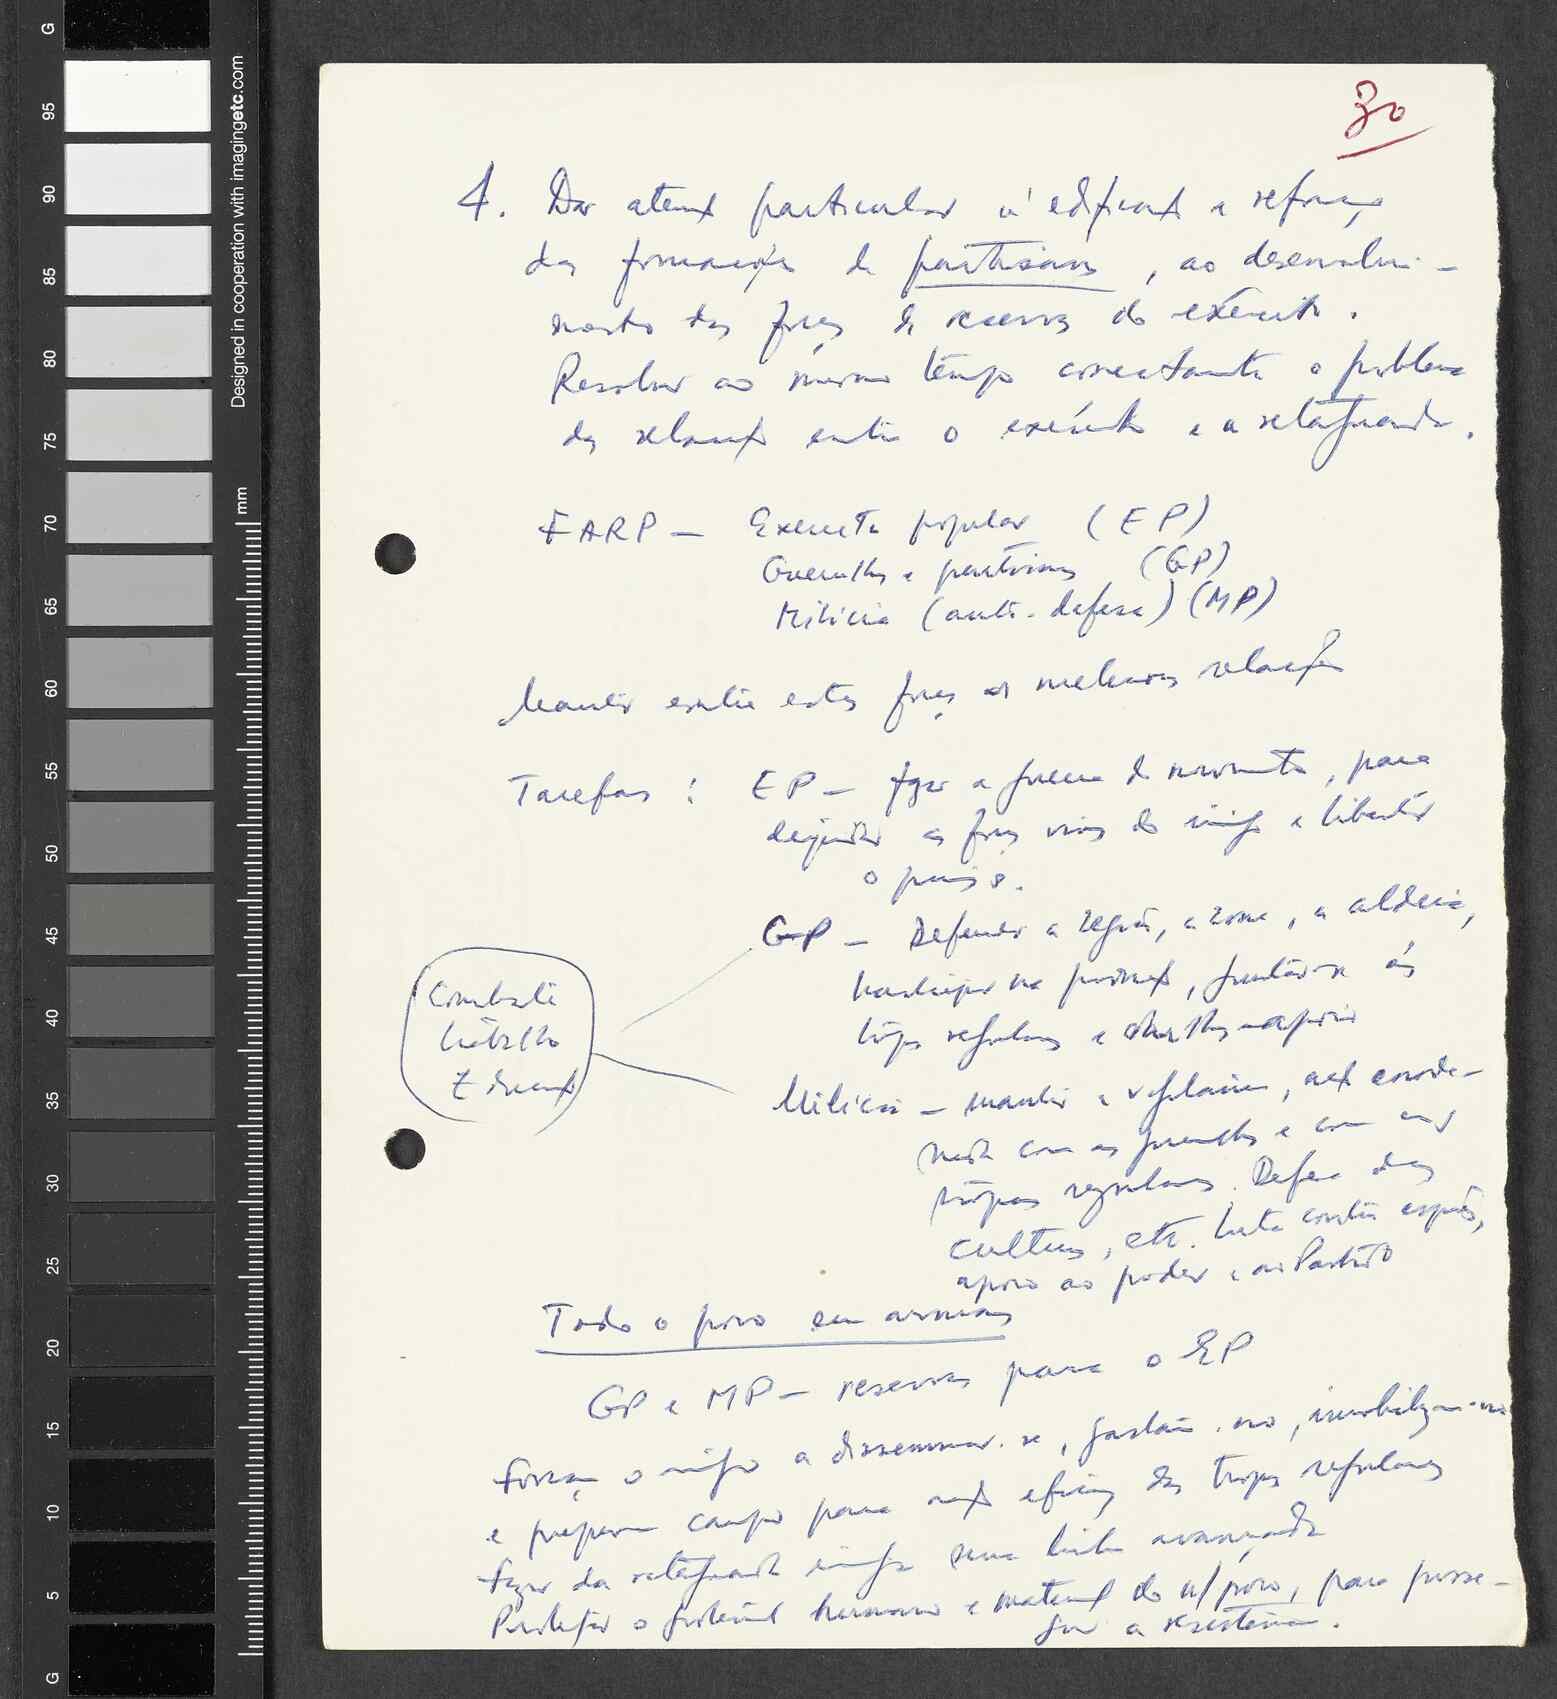 30
4. Dar atenç particular à edificaç e reforço
das formações de partisans, ao desenvolvi-
mento das forças de reserva do exército.
Resolver ao mesmo tempo correctamente o problema
das relaç entre o exército e a retaguarda.
FARP — Exército popular (EP)
Guerrilhas e partisans (GP)
Milícia (auto-defesa) (MP)
Manter entre estas forças as melhores relações
Tarefas : EP — fazer a guerra de movimento, para
as forças vivas do inimigo e libertar
o país.
GP — Defender a região, a zona, a aldeia,
participar na produç, juntar-se às
tropas regulares e
Combate
Trabalho
Educaç
Milícia — manter a vigilância, acç coorde-
nada com as guerrilhas e com as
tropas regulares. Defesa das
culturas, etc. Luta contra espiões,
apoio ao poder e ao Partido
Todo o povo em armas
GP e MP — reservas para o EP
Forçar o inimigo a disseminar-se, gastar-no, imobilizar-no
e preparar campo para acç eficaz das tropas regulares
Fazer da retaguarda inimiga uma linha avançada
Proteger o potencial humano e material do n/ povo, para prosse-
guir a resistência.
G
95
90
85
80
75
70
65
60
55
50
45
40
35
30
25
20
15
10
5
G
Designed in cooperation with imagingetc.com
mm